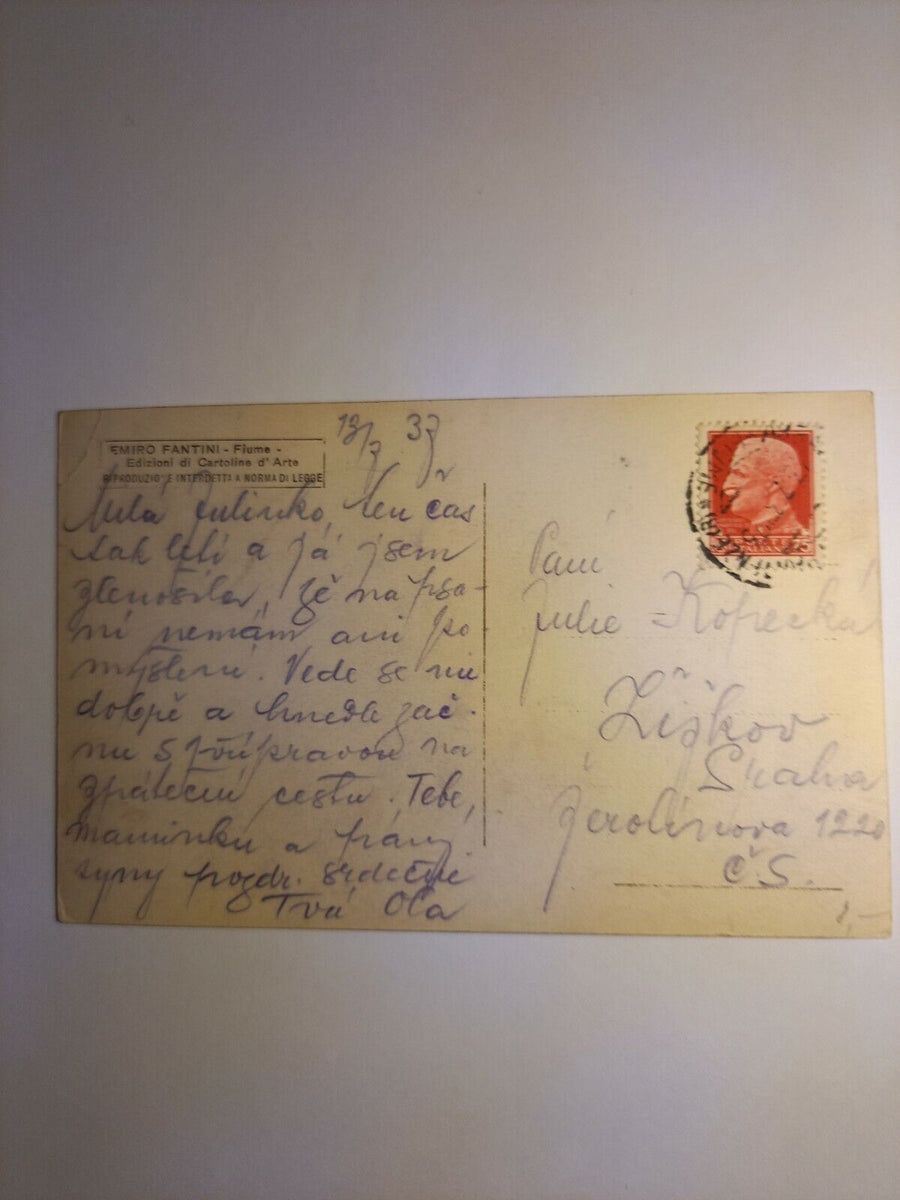 EMIRO FANTINI - Fiume -
Edizioni di Cartoline d' Arte
RIPRODUZIONE INTERDETTA A NORMA DI LEGGE
13/7 37
Milá Julinko, ten čas
tak letí a já jsem
zlenošila, že na psa-
ní nemám ani po-
myšlení. Vede se mi
dobře a hnedle zač-
nu s přípravou na
zpáteční cestu. Tebe,
maminku a pány
syny pozdr. srdečně
Tvá Ola
Paní
Julie Kopecká
Žižkov
Praha
Jerolímova 1220
Č.S.